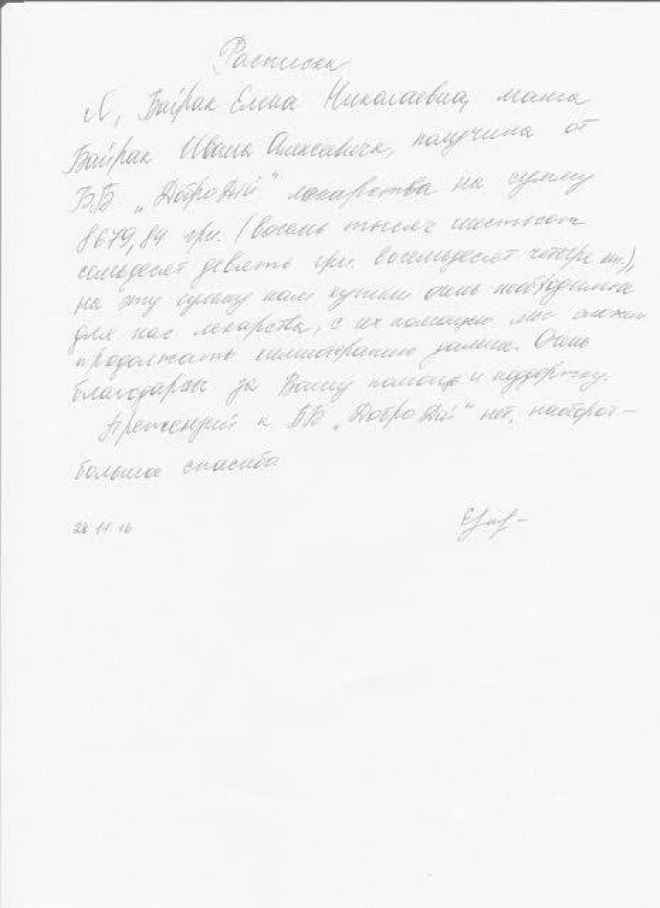 Расписка
Я, Байрак Елена Николаевна, мама
Байрак Ивана Алексеевича, получила от
ББ „Добродій" лекарства на сумму
8679,84 грн. (восемь тысяч шестьсот
семьдесят девять грн. восемьдесят четыре коп.),
на эту сумму нам купили очень необходимые
для нас лекарства, с их помощью мы сможем
продолжать химиотерапию дальше. Очень
благодарны за Вашу помощь и поддержку.
Претензий к ББ „Добродій" нет, наоборот –
большое спасибо
28 11 16